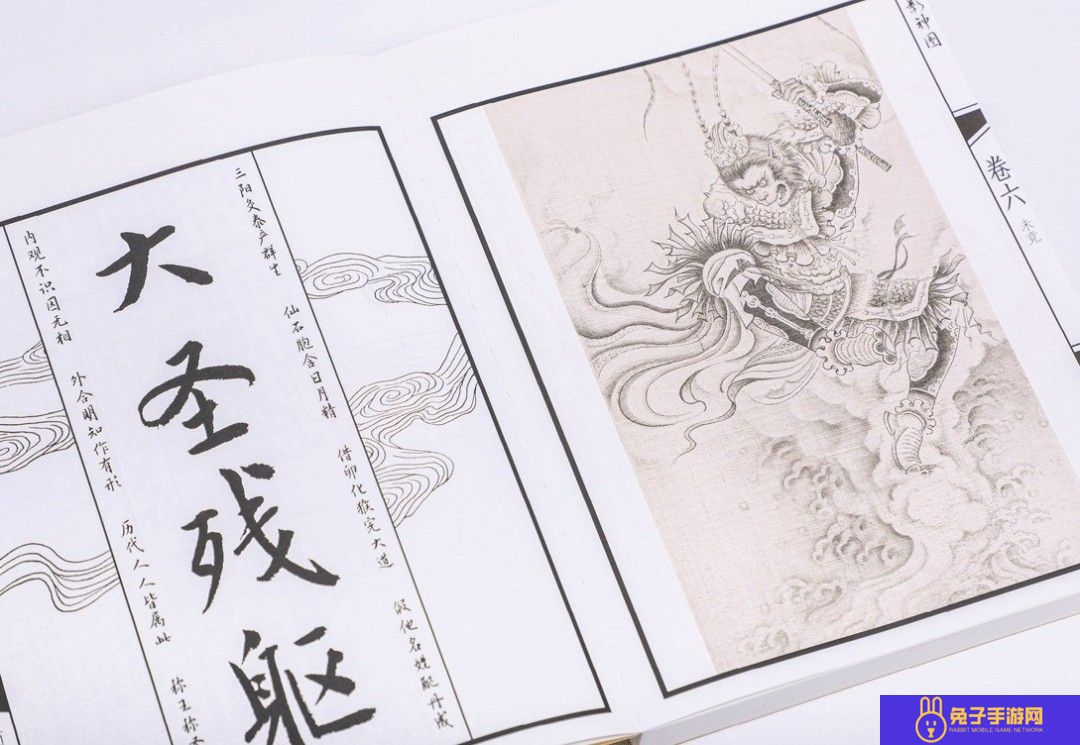 影神图
卷六
未竟
三阳交泰产群生
仙石胞含日月精
借卵化猴完大道
假他名姓配丹成
大圣残躯
内观不识因无相
外合明知作有形
历代人人皆属此
称王称
兔子手游网
RABBIT MOBILE GAME NETWORK